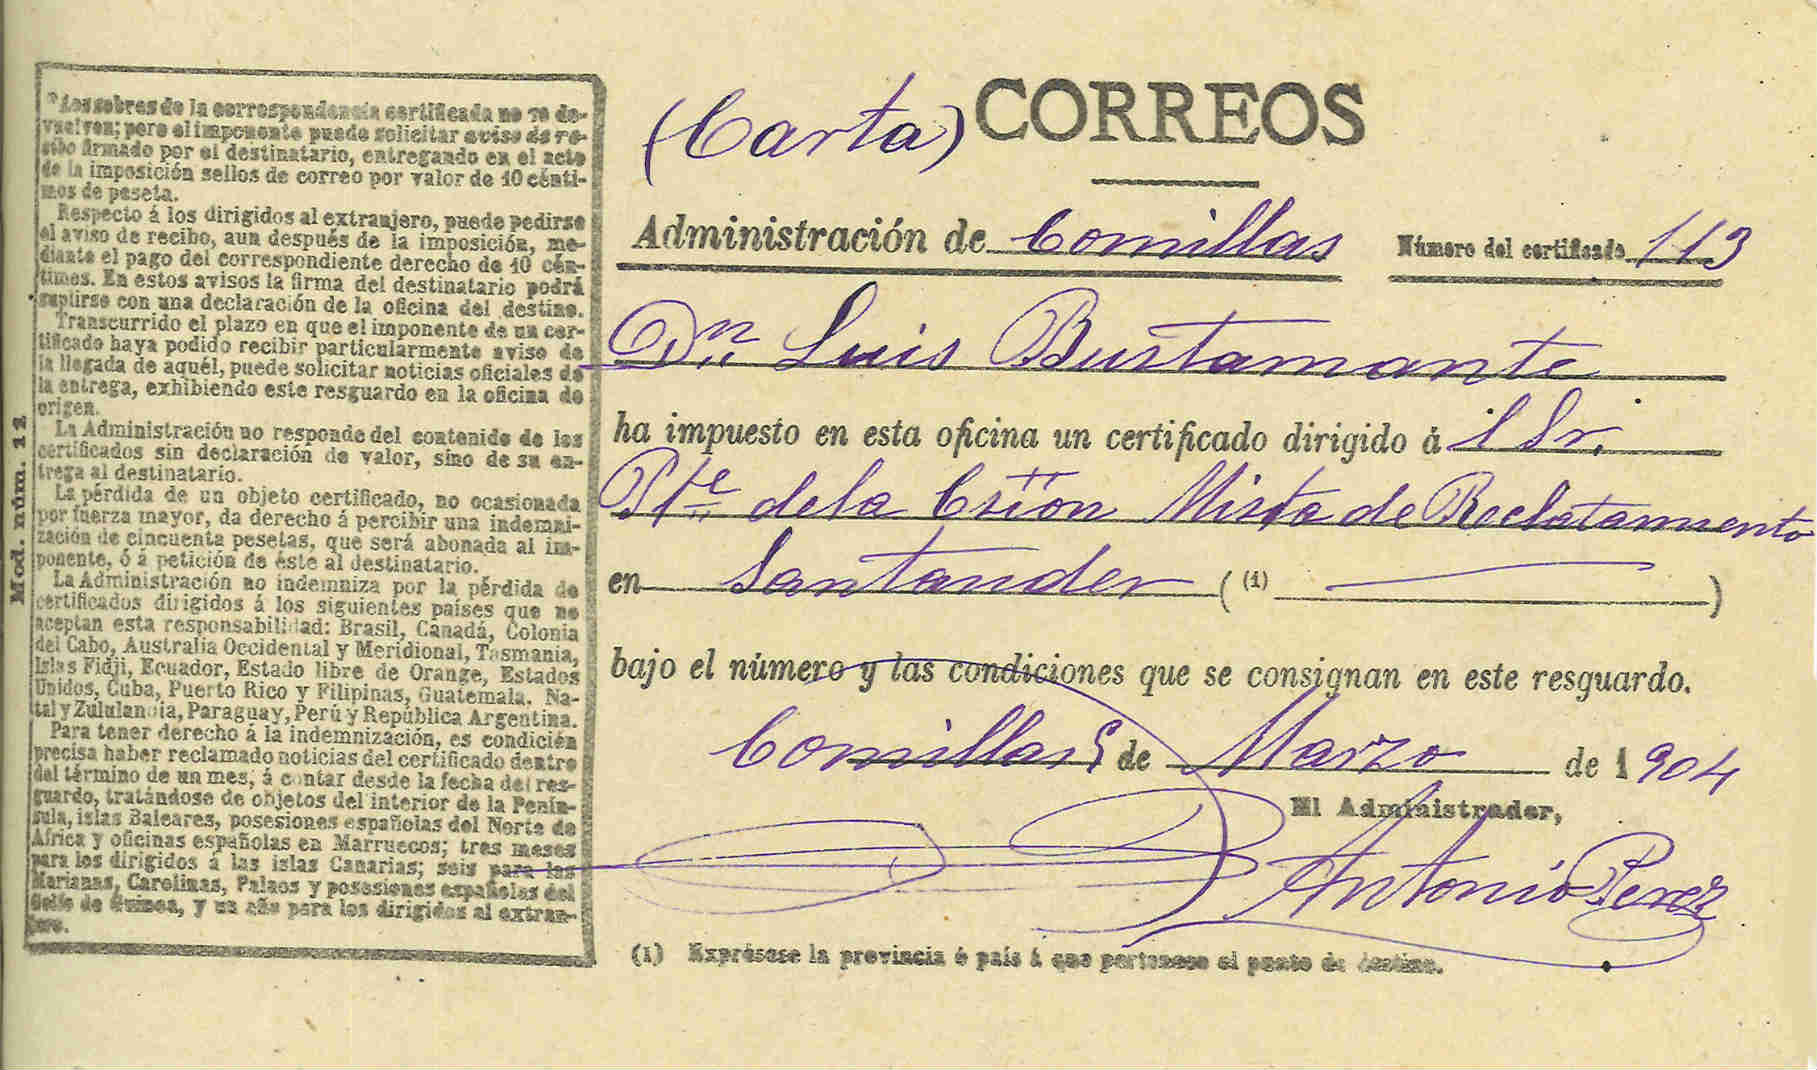 Mod. núm. 12
Los sobres de la correspondencia certificada no se de-
vuelven; pero el imponente puede solicitar aviso de re-
cibo firmado por el destinatario, entregando en el acto
de la imposición sellos de correo por valor de 10 cénti-
mos de peseta.
Respecto á los dirigidos al extranjero, puede pedirse
el aviso de recibo, aun después de la imposición, me-
diante el pago del correspondiente derecho de 10 cén-
timos. En estos avisos la firma del destinatario podrá
suplirse con una declaración de la oficina del destino.
Transcurrido el plazo en que el imponente de un cer-
tificado haya podido recibir particularmente aviso de
la llegada de aquél, puede solicitar noticias oficiales de
la entrega, exhibiendo este resguardo en la oficina de
origen.
La Administración no responde del contenido de los
certificados sin declaración de valor, sino de su en-
trega al destinatario.
La pérdida de un objeto certificado, no ocasionada
por fuerza mayor, da derecho á percibir una indemni-
zación de cincuenta pesetas, que será abonada al im-
ponente, ó á petición de éste al destinatario.
La Administración no indemniza por la pérdida de
certificados dirigidos á los siguientes países que no
aceptan esta responsabilidad: Brasil, Canadá, Colonia
del Cabo, Australia Occidental y Meridional, Tasmania,
Islas Fidji, Ecuador, Estado libre de Orange, Estados
Unidos, Cuba, Puerto Rico y Filipinas, Guatemala, Na-
tal y Zululandia, Paraguay, Perú y República Argentina.
Para tener derecho á la indemnización, es condición
precisa haber reclamado noticias del certificado dentro
del término de un mes, á contar desde la fecha del res-
guardo, tratándose de objetos del interior de la Penín-
sula, islas Baleares, posesiones españolas del Norte de
Africa y oficinas españolas en Marruecos; tres meses
para los dirigidos á las islas Canarias; seis para las
Marianas, Carolinas, Palaos y posesiones españolas del
Golfo de Guinea, y un año para los dirigidos al extran-
jero.
(Carta) CORREOS
Administración de Comillas Número del certificado 113
Dn Luis Bustamante
ha impuesto en esta oficina un certificado dirigido á l Sr.
Pte de la Csiön Mista de Reclutamiento
en Santander ( (1) )
bajo el número y las condiciones que se consignan en este resguardo.
Comillas de Marzo de 1904
El Administrador,
Antonio Perez
(1) Exprésese la provincia ó país á que pertenece el punto de destino.